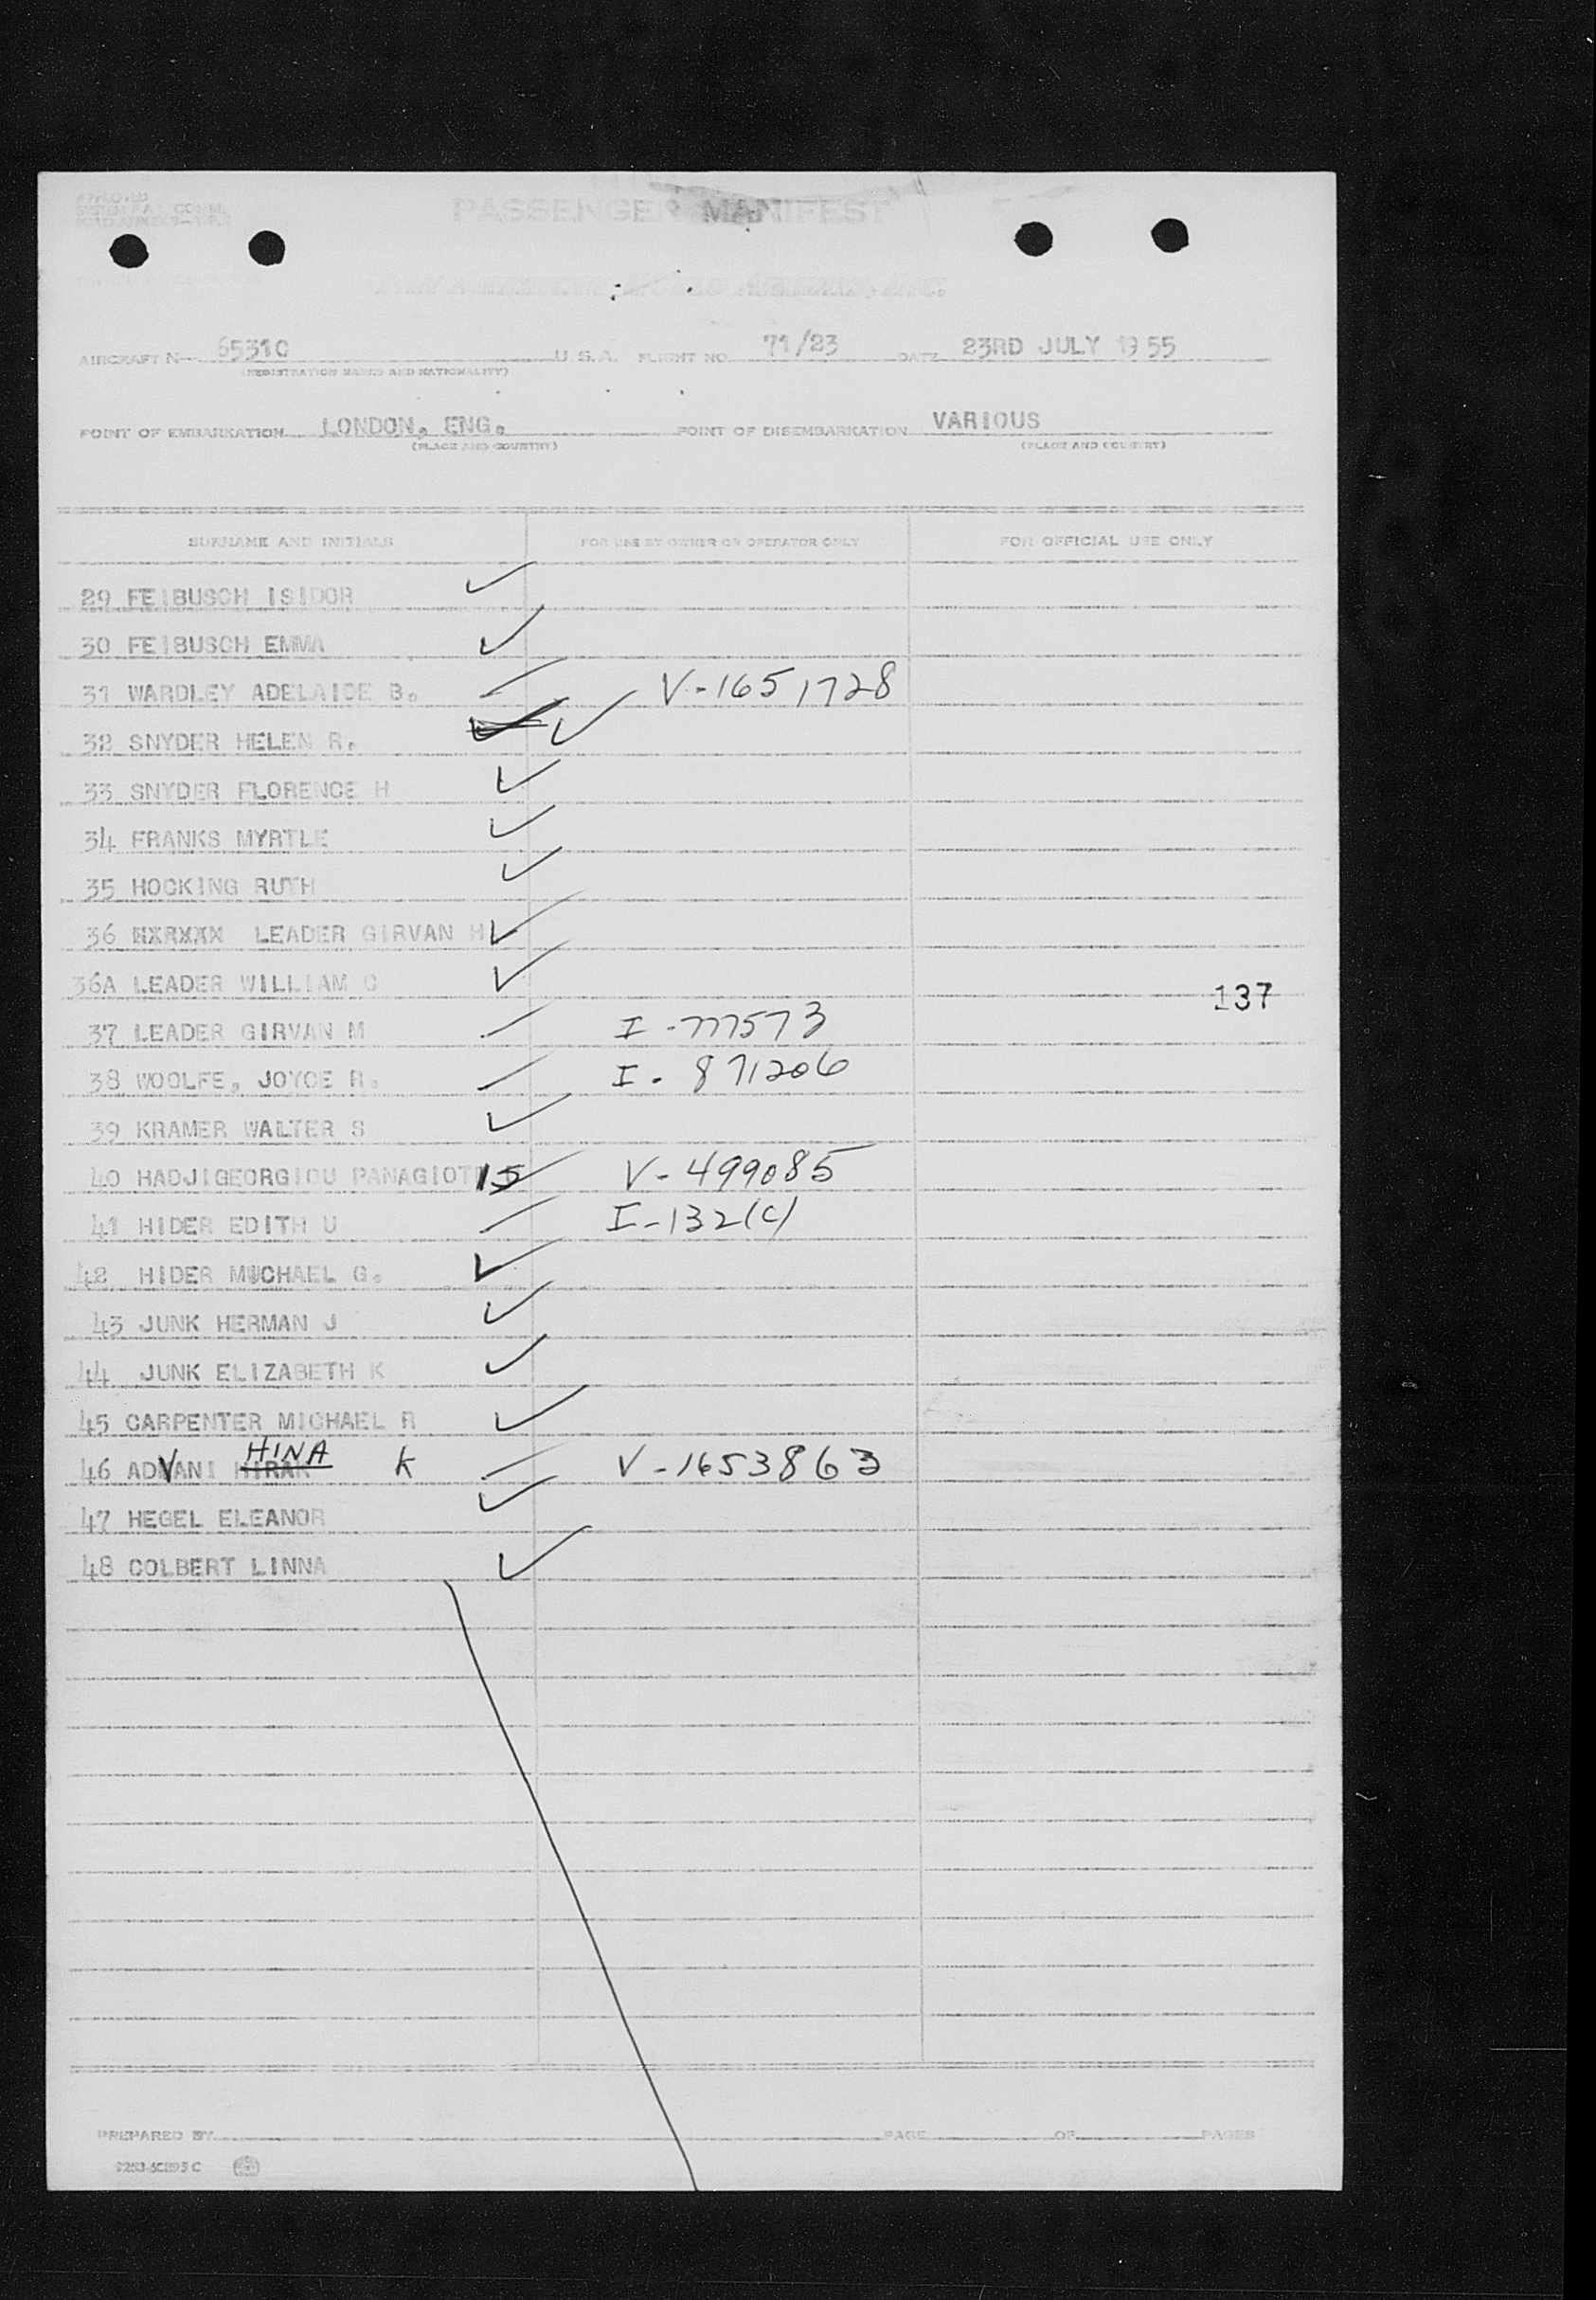 PASSENGER MANIFEST
AIRCRAFT N 6531C U.S.A. FLIGHT NO. 71/23 DATE 23RD JULY 1955
(REGISTRATION MARKS AND NATIONALITY)
POINT OF EMBARKATION LONDON, ENG. POINT OF DISEMBARKATION VARIOUS
(PLACE AND COUNTRY) (PLACE AND COUNTRY)
SURNAME AND INITIALS FOR USE BY OWNER OR OPERATOR ONLY FOR OFFICIAL USE ONLY
29 FEIBUSCH ISIDOR
30 FEIBUSCH EMMA
31 WARDLEY ADELAIDE B. V-1651728
32 SNYDER HELEN R.
33 SNYDER FLORENCE H
34 FRANKS MYRTLE
35 HOCKING RUTH
36 LEADER GIRVAN H
36A LEADER WILLIAM C
137
37 LEADER GIRVAN M I-777573
38 WOOLFE, JOYCE R. I-871206
39 KRAMER WALTER S
40 HADJIGEORGIOU PANAGIOTIS V-499085
41 HIDER EDITH U I-132(C)
42 HIDER MICHAEL G.
43 JUNK HERMAN J
44 JUNK ELIZABETH K
45 CARPENTER MICHAEL R
HINA
46 ADVANI HIRAK K V-1653863
47 HEGEL ELEANOR
48 COLBERT LINNA
PREPARED BY PAGE OF PAGES